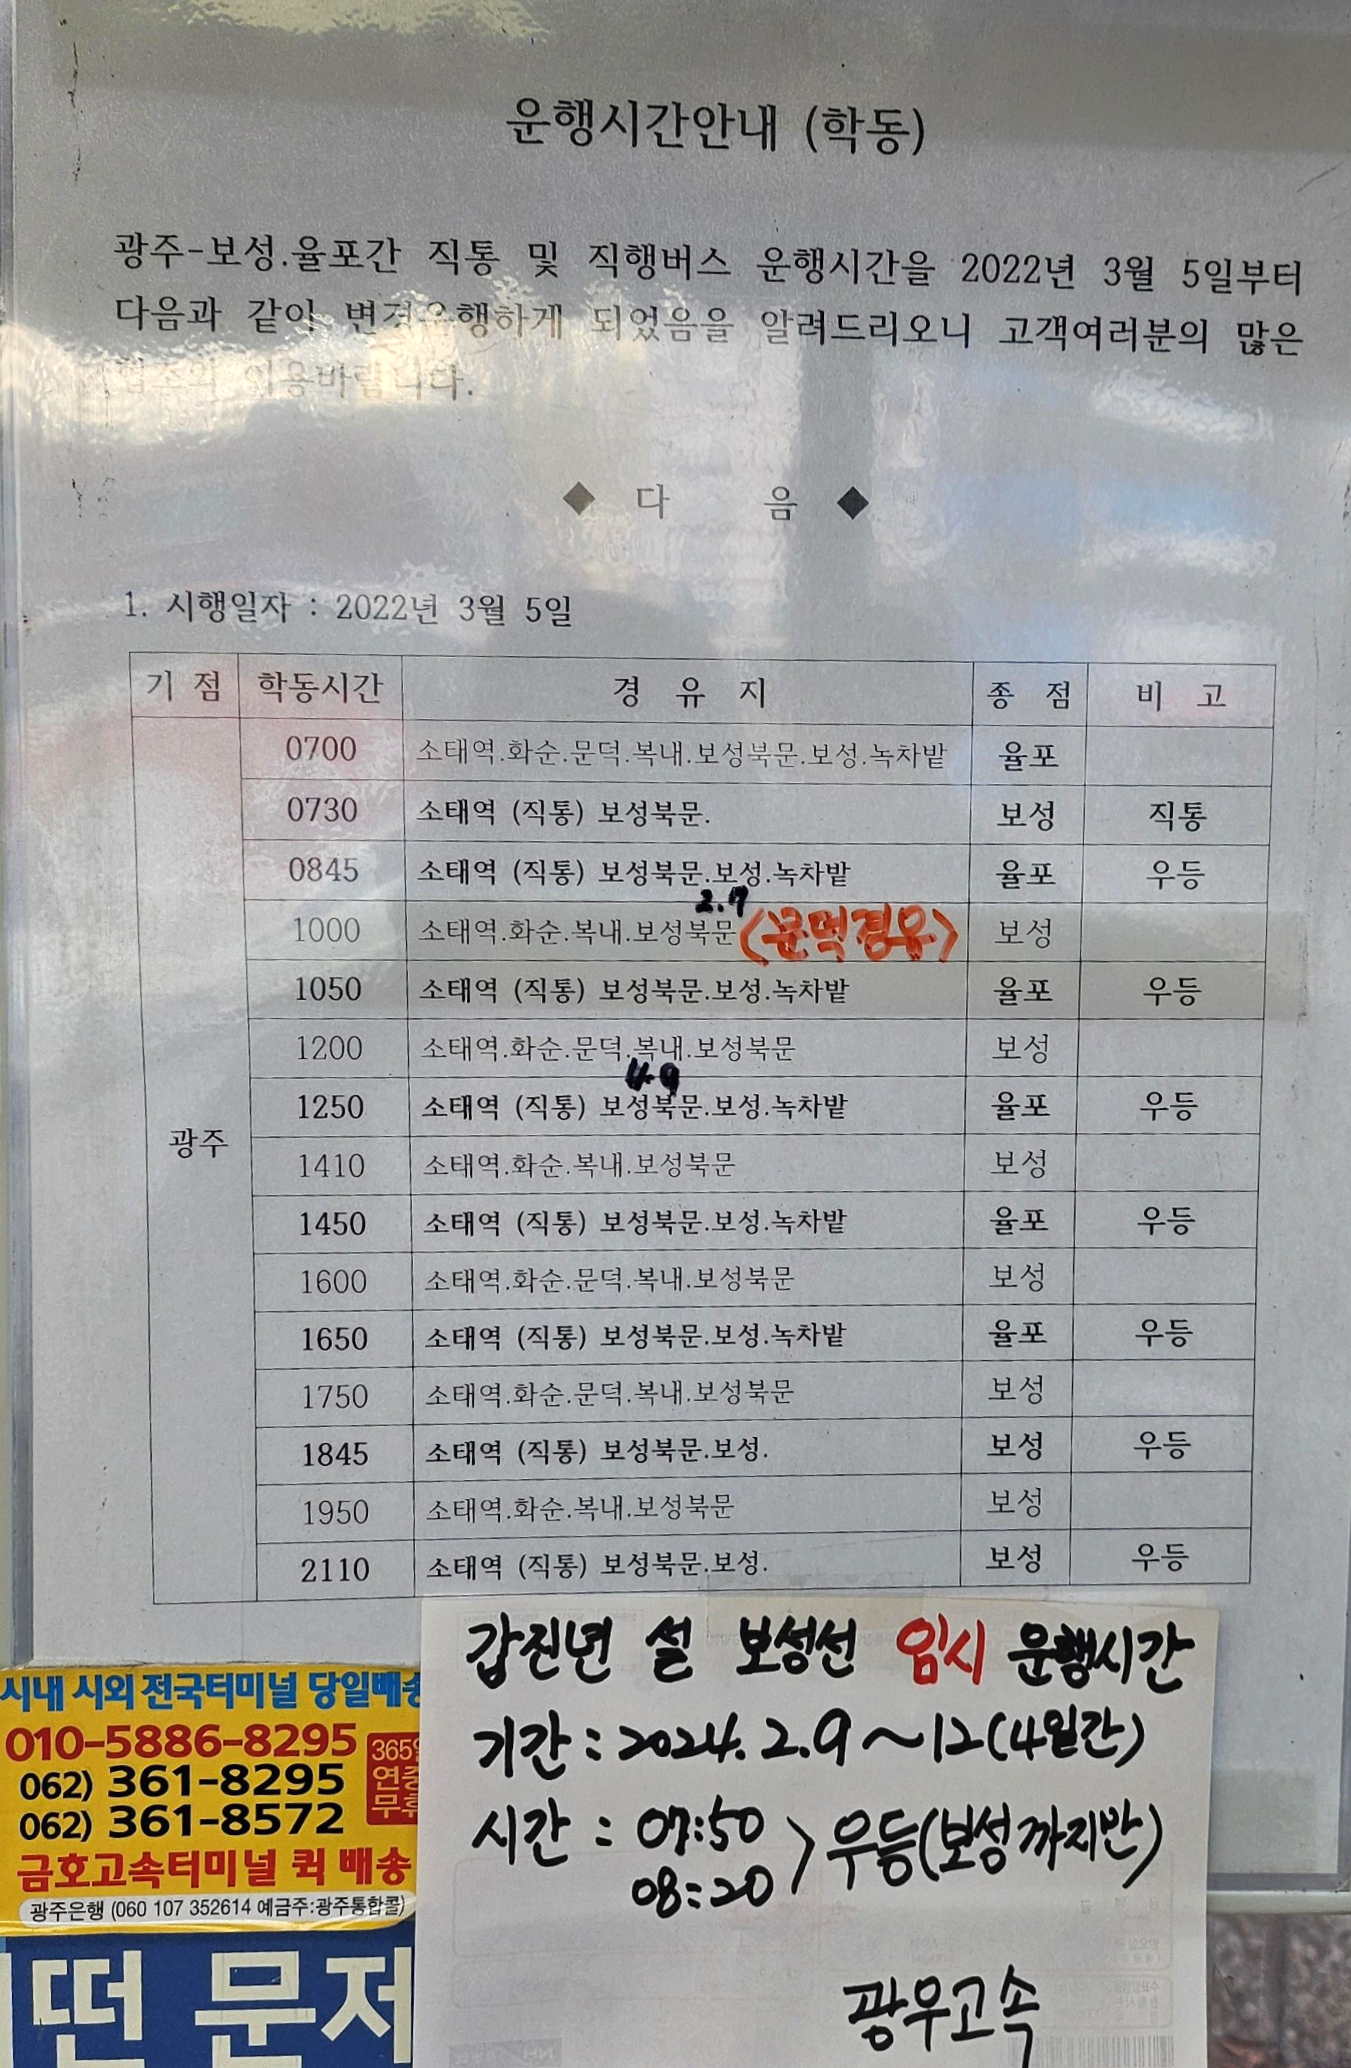 운행시간안내 (학동)
광주-보성.율포간 직통 및 직행버스 운행시간을 2022년 3월 5일부터
다음과 같이 변경운행하게 되었음을 알려드리오니 고객여러분의 많은
이용바랍니다.
◆ 다 음 ◆
1. 시행일자 : 2022년 3월 5일
기 점 학동시간 경 유 지 종 점 비 고
광주
0700 소태역.화순.문덕.복내.보성북문.보성.녹차밭 율포
0730 소태역 (직통) 보성북문. 보성 직통
0845 소태역 (직통) 보성북문.보성.녹차밭 율포 우등
2.7
1000 소태역.화순.복내.보성북문 (문덕경유) 보성
1050 소태역 (직통) 보성북문.보성.녹차밭 율포 우등
1200 소태역.화순.문덕.복내.보성북문 보성
4.9
1250 소태역 (직통) 보성북문.보성.녹차밭 율포 우등
1410 소태역.화순.복내.보성북문 보성
1450 소태역 (직통) 보성북문.보성.녹차밭 율포 우등
1600 소태역.화순.문덕.복내.보성북문 보성
1650 소태역 (직통) 보성북문.보성.녹차밭 율포 우등
1750 소태역.화순.문덕.복내.보성북문 보성
1845 소태역 (직통) 보성북문.보성. 보성 우등
1950 소태역.화순.복내.보성북문 보성
2110 소태역 (직통) 보성북문.보성. 보성 우등
갑진년 설 보성선 임시 운행시간
기간 : 2024. 2.9 ~12(4일간)
시간 : 07:50
08:20 > 우등(보성까지만)
광우고속
시내 시외 전국터미널 당일배송
010-5886-8295
062) 361-8295
062) 361-8572
365일
연중
무휴
금호고속터미널 퀵 배송
광주은행 (060 107 352614 예금주:광주통합콜)
떤 문제